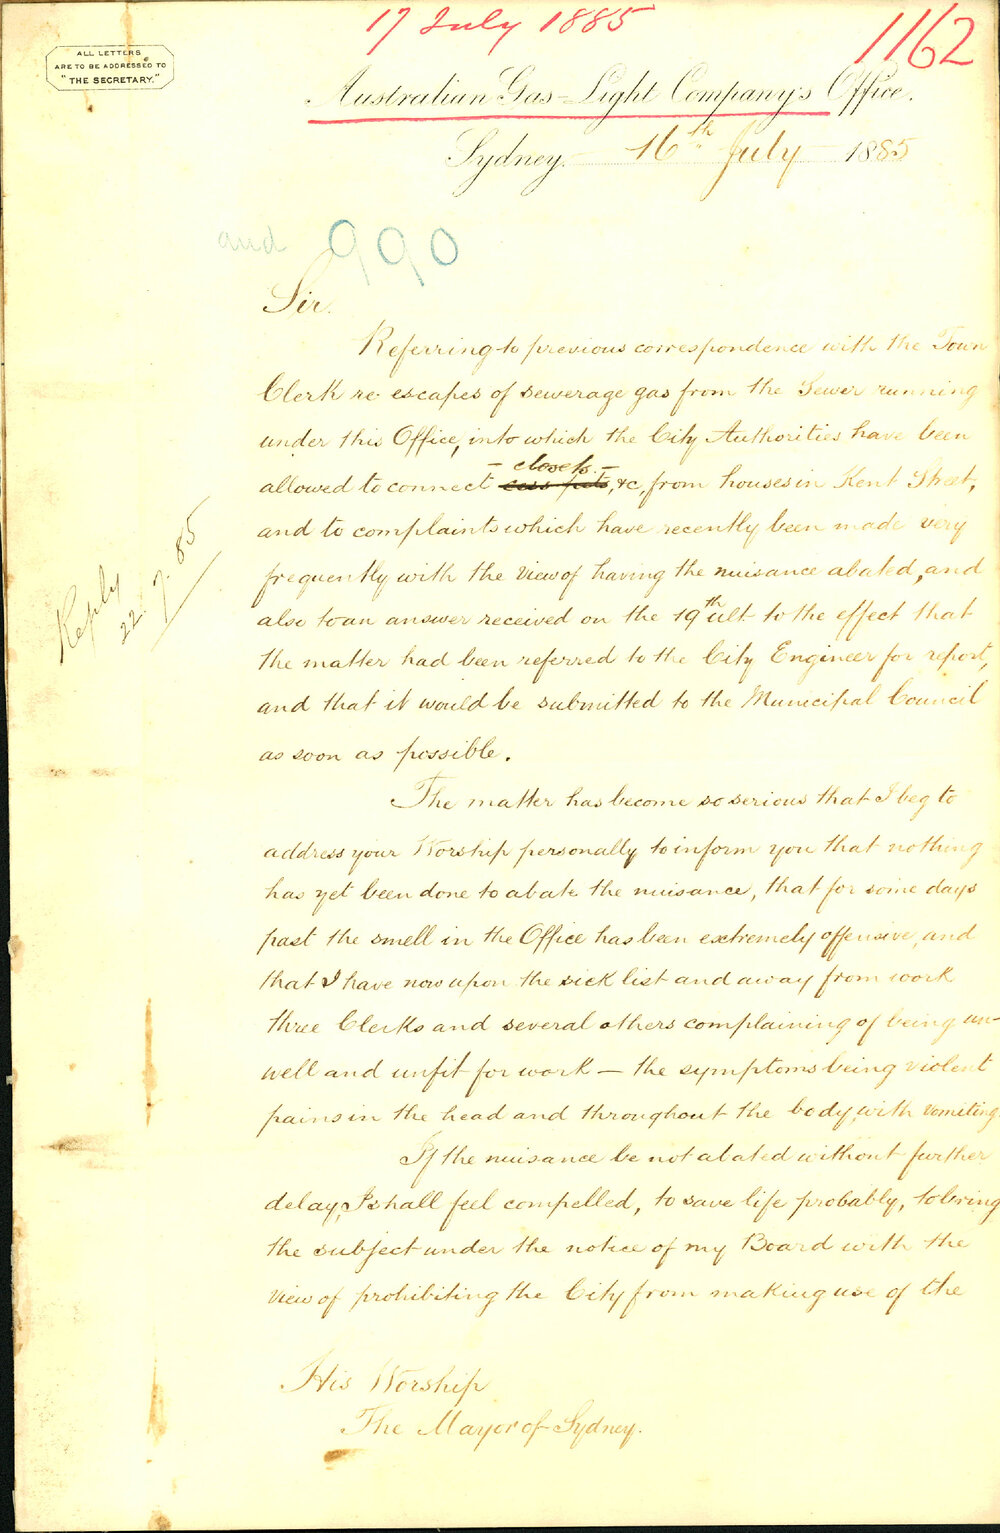 17 July 1885
1162
ALL LETTERS
ARE TO BE ADDRESSED TO
"THE SECRETARY."
Australian Gas-Light Company's Office.
Sydney. 16th July 1885
and 990
Sir.
Referring to previous correspondence with the Town
Clerk re escapes of sewerage gas from the Sewer running
under this Office, into which the City Authorities have been
- closets. -
allowed to connect cess pits, &c, from houses in Kent Street,
and to complaints which have recently been made very
frequently with the view of having the nuisance abated, and
also to an answer received on the 19th ult to the effect that
the matter had been referred to the City Engineer for report,
and that it would be submitted to the Municipal Council
as soon as possible.
Reply
22.7.85
The matter has become so serious that I beg to
address your Worship personally to inform you that nothing
has yet been done to abate the nuisance, that for some days
past the smell in the Office has been extremely offensive, and
that I have now upon the sick list and away from work
three Clerks and several others complaining of being un-
well and unfit for work — the symptoms being violent
pains in the head and throughout the body, with vomiting.
If the nuisance be not abated without further
delay, I shall feel compelled, to save life probably, to bring
the subject under the notice of my Board with the
view of prohibiting the City from making use of the
His Worship
The Mayor of Sydney.